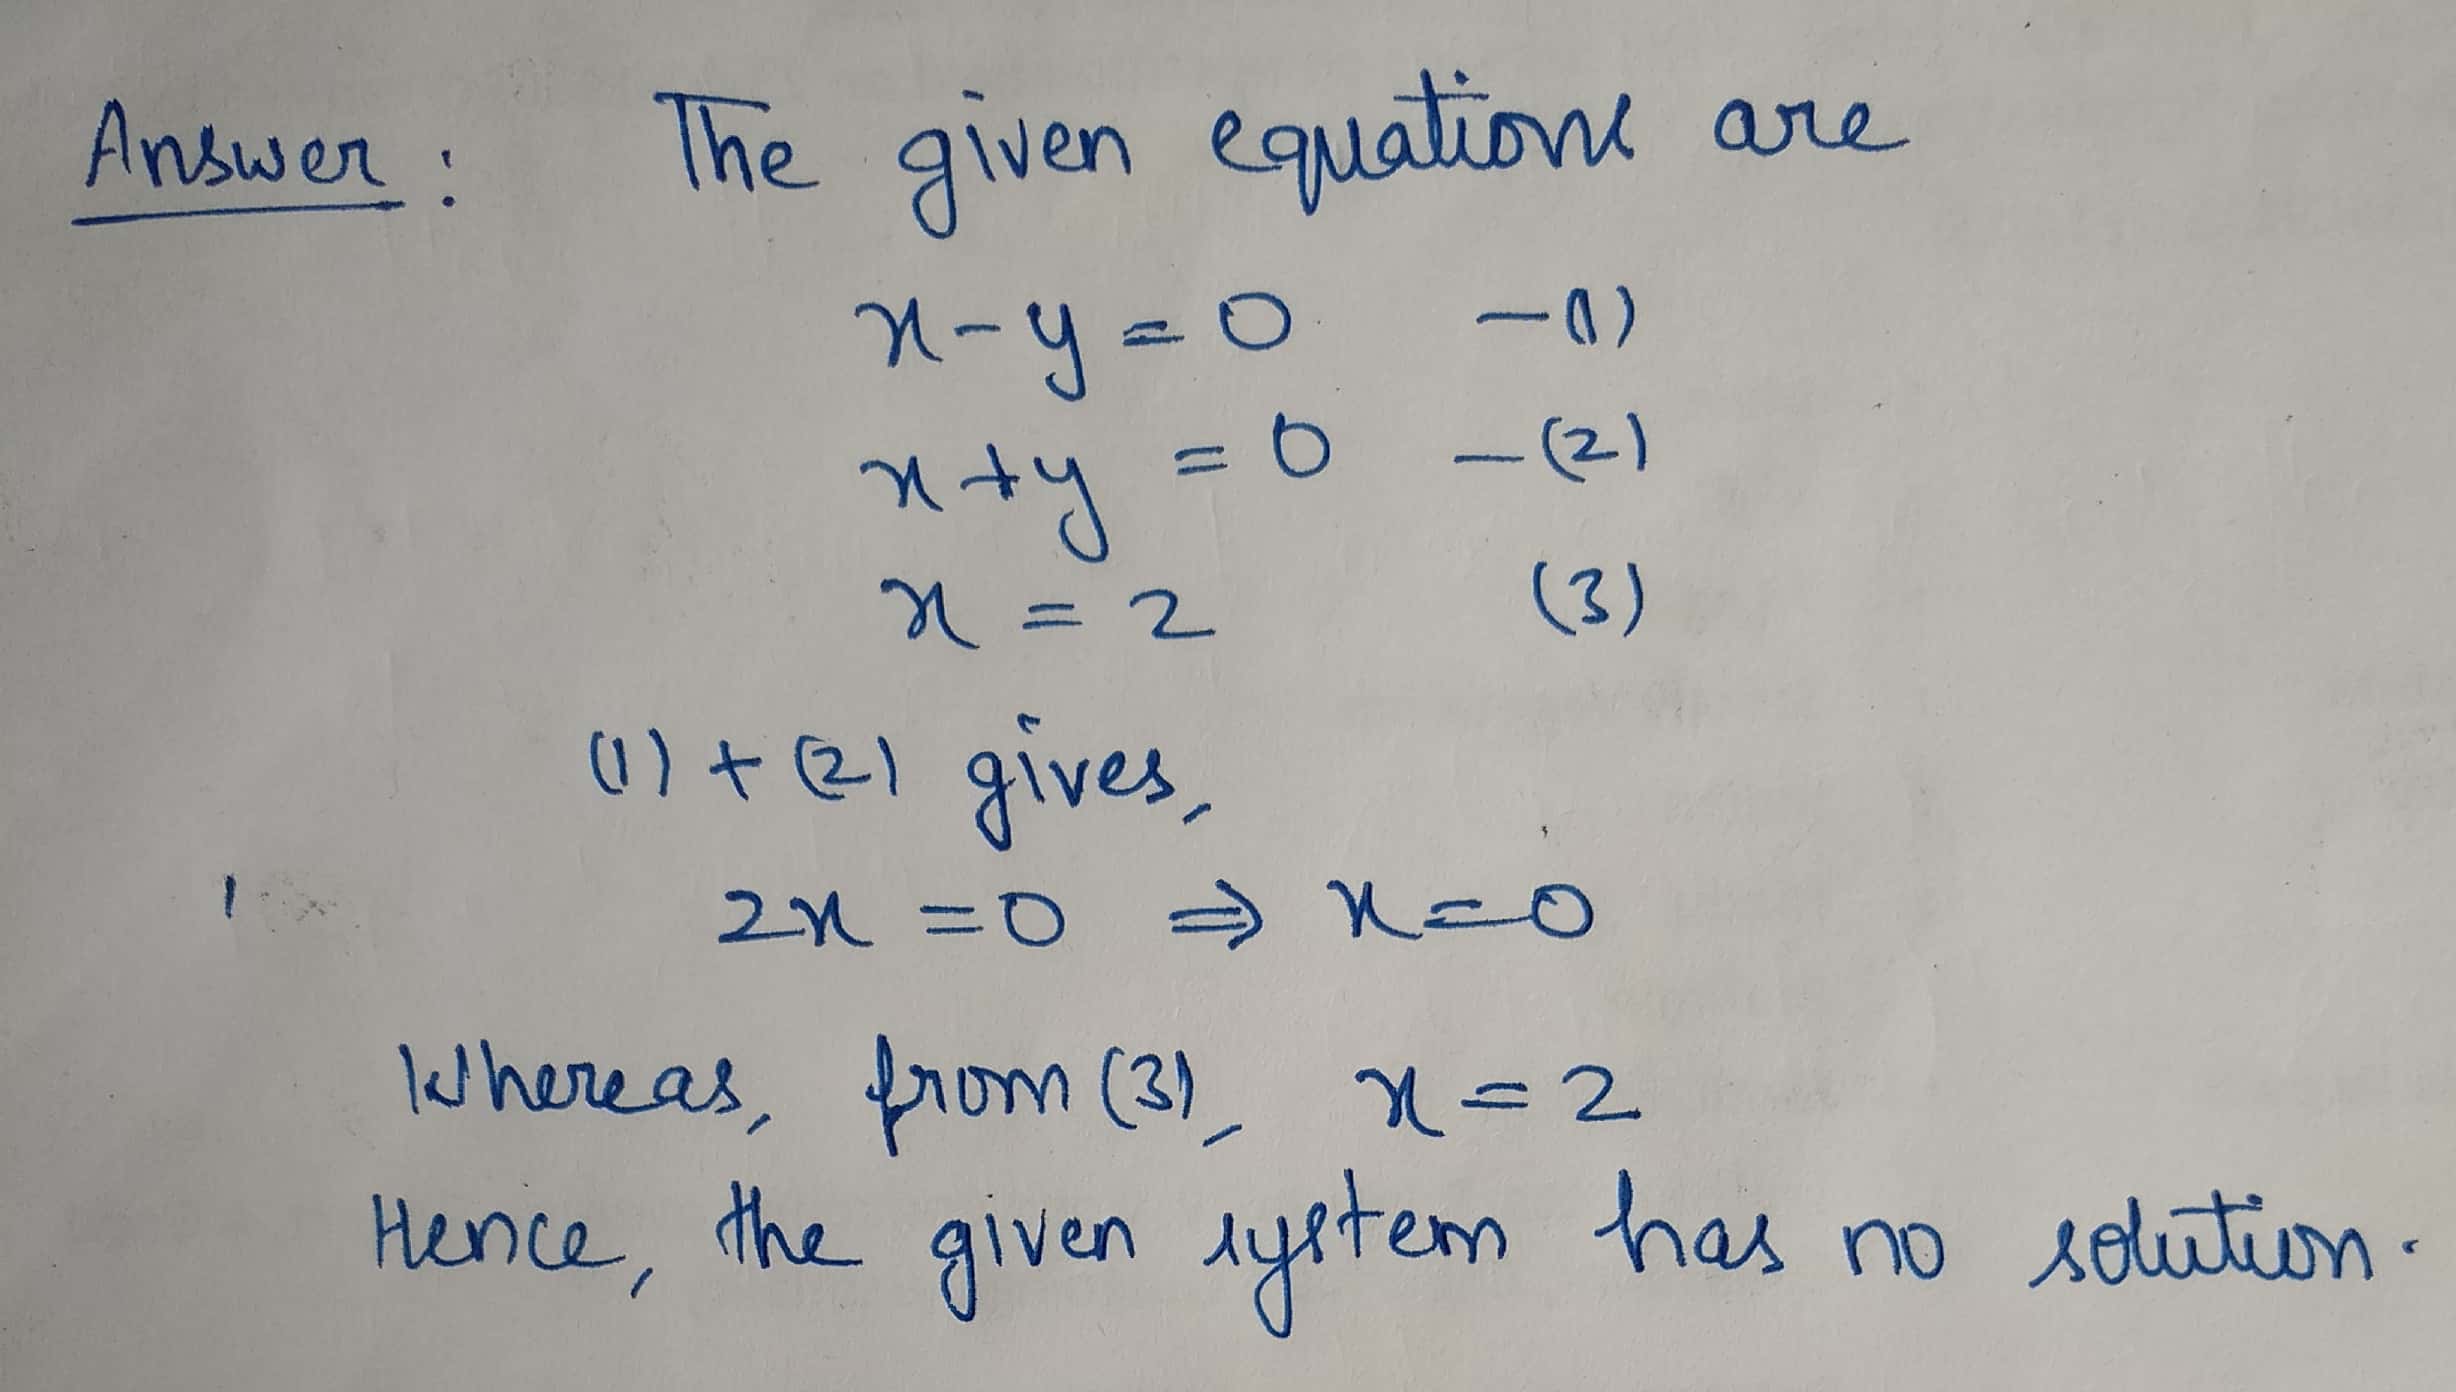 Answer : The given equations are
x - y = 0 - (1)
x + y = 0 - (2)
x = 2 (3)
(1) + (2) gives,
2x = 0 ⇒ x = 0
Whereas, from (3), x = 2
Hence, the given system has no solution.